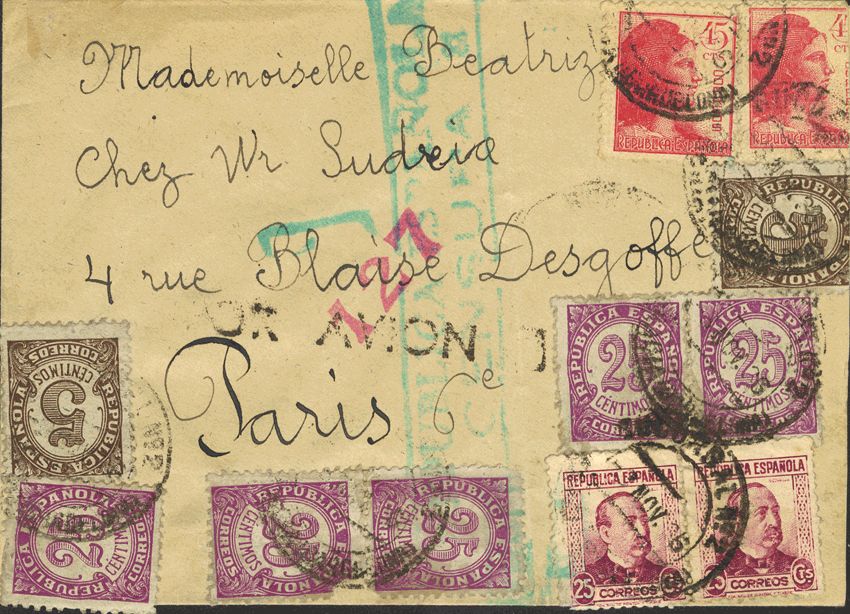 Mademoiselle Beatriz
Chez Mr Sudreia
4 rue Blaise Desgoffe
Paris 6e
127
OR AVION
CENSURA
45
CTS
REPUBLICA ESPAÑOLA
4
CT
REPUBLICA ESPAÑOLA
REPUBLICA ESPAÑOLA
5
CENTIMOS
REPUBLICA ESPAÑOLA
25
CENTIMOS
CORREOS
REPUBLICA ESPAÑOLA
25
CENTIMOS
CORREOS
REPUBLICA ESPAÑOLA
5
CENTIMOS
CORREOS
REPUBLICA ESPAÑOLA
2
CENTIMO
CORREOS
ESPAÑOLA
CENTIMOS
CORREOS
REPUBLICA ESPAÑOLA
25
CENTIMOS
CORREOS
REPUBLICA ESPAÑOLA
25 CORREOS Cs
REPUBLICA ESPAÑOLA
25 CORREOS Cs
NOV. 38